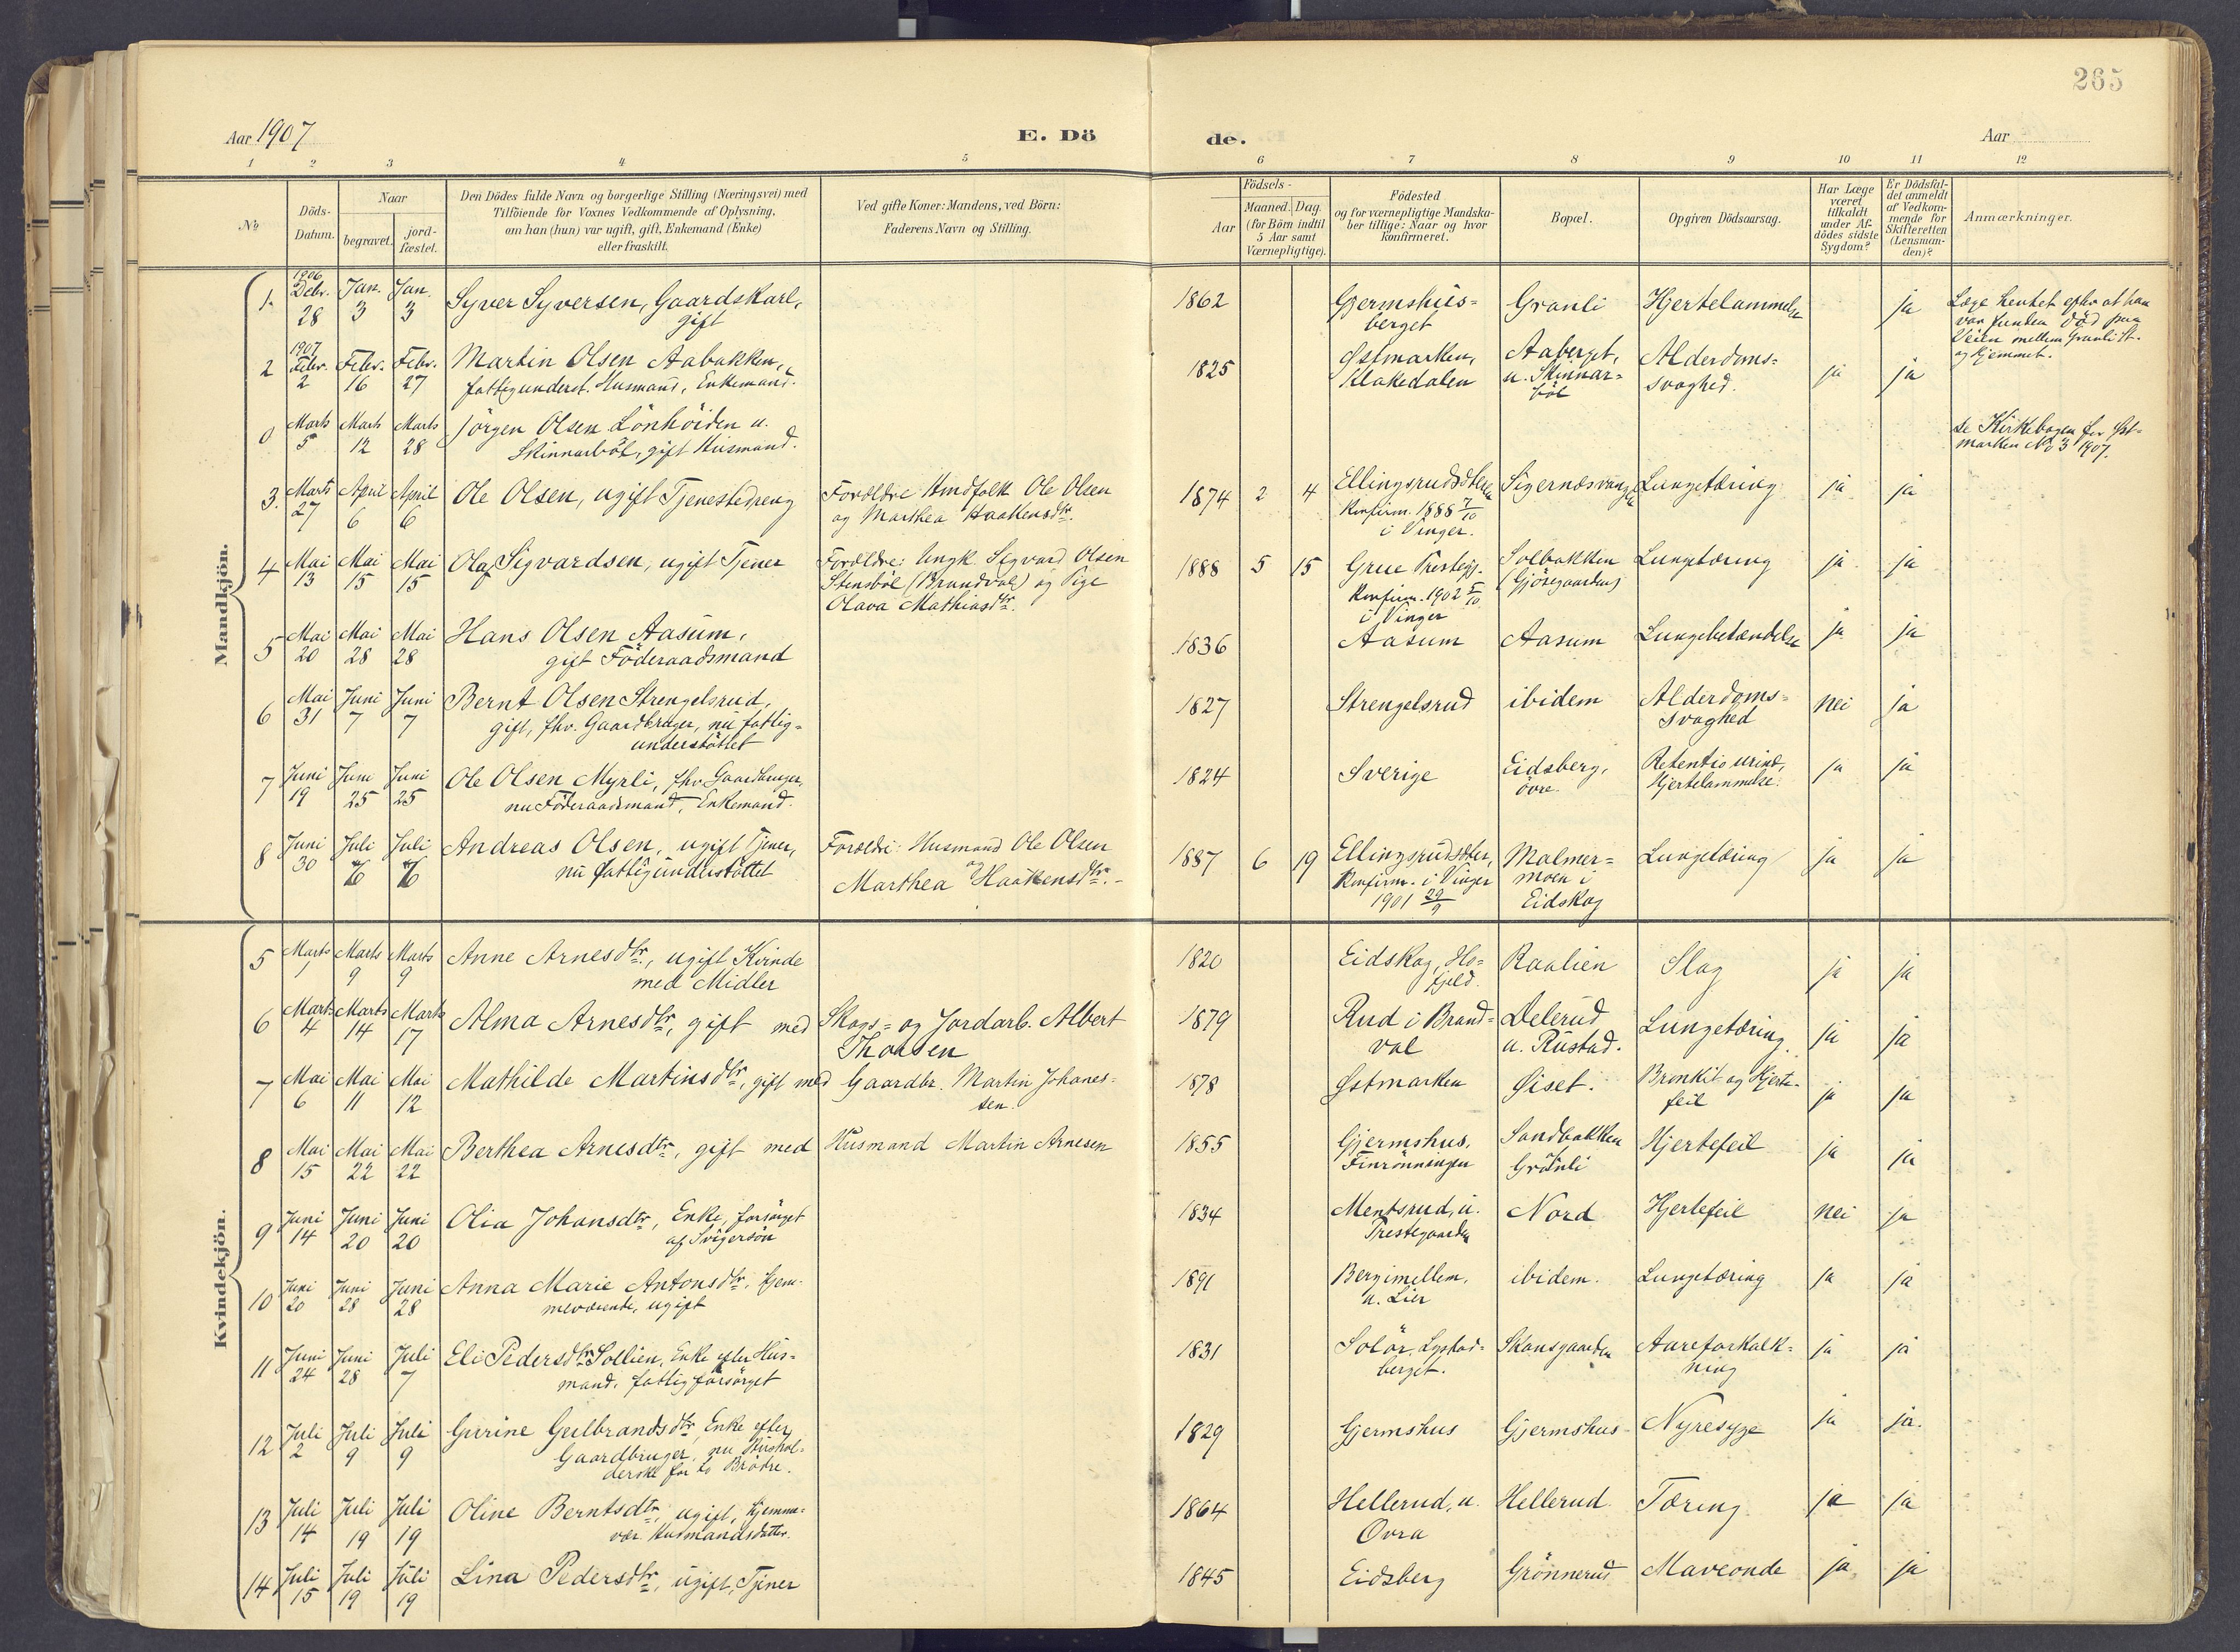 265
Aar 1907
E. Dö
de.
Aar
1 2 3 4 5 6 7 8 9 10 11 12
No
Döds-
Datum.
Naar
begravet.
jord-
fæstet.
Den Dödes fulde Navn og borgerlige Stilling (Næringsvei) med
Tilföiende for Voxnes Vedkommende af Oplysning,
om han (hun) var ugift, gift, Enkemand (Enke)
eller fraskilt.
Ved gifte Koner: Mandens, ved Börn:
Faderens Navn og Stilling.
Födsels-
Aar
Maaned. Dag.
(for Börn indtil
5 Aar samt
Værnepligtige).
Födested
og for værnepligtige Mandska-
ber tillige: Naar og hvor
konfirmeret.
Bopæl.
Opgiven Dödsaarsag.
Har Læge
været
tilkaldt
under Af-
dödes sidste
Sygdom?
Er Dödsfal-
det anmeldt
af Vedkom-
mende for
Skifteretten
(Lensman-
den)?
Anmærkninger.
Mandkjön.
1. 1906 Debr. 28 Jan. 3 Jan. 3 Syver Syversen, Gaardskarl,
gift
1862 Gjermshus=
berget Granli Hjertelammelse ja
Læge hentet efter at han
var funden död paa
Veien mellem Granli st.
og Hjemmet.
2 1907 Febr. 2 Febr. 16 Febr. 27 Martin Olsen Aabakken,
fattigunderst. Husmand, Enkemand.
1825 Østmarken,
Klakedalen Aaberget,
u. Skinnar=
böl Alderdoms=
svaghed. ja ja
0 Marts 5 Marts 12 Marts 28 Jörgen Olsen Lönhöiden u.
Skinnarböl, gift Husmand.
se Kirkebogen for Øst-
marken No 3 1907.
3. Marts 27 April 6 April 6 Ole Olsen, ugift Tjenestedreng
Forældre Hmdfolk Ole Olsen
og Marthea Haakensdtr.
1874 2 4 Ellingsrudsæteren
Konfirm. 1888 7/10
i Vinger. Sigernæsvangen Lungetæring ja ja
4 Mai 13 Mai 15 Mai 15 Olaf Sigvardsen, ugift Tjener
Forældre: Ungk. Sigvard Olsen
Stensböl (Brandval) og Pige
Olava Mathiasdtr.
1888 5 15 Grue Prestegj.
Konfirm. 1902 5/10
i Vinger Solbakken
(Gjösegaarden) Lungetæring ja ja
5 Mai 20 Mai 28 Mai 28 Hans Olsen Aasum,
gift Föderaadsmand
1836 Aasum Aasum Lungebetændelse ja ja
6 Mai 31 Juni 7 Juni 7 Bernt Olsen Strengelsrud,
gift, fhv. Gaardbruger, nu fattig=
understöttet
1827 Strengelsrud ibidem Alderdoms=
svaghed nei ja
7 Juni 19 Juni 25 Juni 25 Ole Olsen Myrli, fhv. Gaardbruger,
nu Föderaadsmand, Enkemand.
1824 Sverige Eidsberg,
övre. Retentio urinæ,
Hjertelammelse. ja ja
8 Juni 30 Juli 6 Juli 6 Andreas Olsen, ugift Tjener,
nu fattigunderstöttet
Forældre: Husmand Ole Olsen
og
Marthea Haakensdtr.
1887 6 19 Ellingsrudsæter,
Konfirm. i Vinger
1901 29/9 Malmer=
moen i
Eidskog Lungetæring ja ja
Kvindekjön.
5 Marts 1 Marts 9 Marts 9 Anne Arnesdtr., ugift Kvinde
med Midler
1820 Eidskog, Ho=
fjeld. Raalien Slag ja ja
6 Marts 4 Marts 14 Marts 17 Alma Arnesdtr, gift med Skogs= og Jordarb. Albert
Thoresen
1879 Rud i Brand=
val Delerud
u. Rustad. Lungetæring. ja ja
7 Mai 6 Mai 11 Mai 12 Mathilde Martinsdtr, gift med Gaardbr. Martin Johanes=
sen.
1878 Østmarken Øiset. Bronkit og Hjerte-
feil ja ja
8 Mai 15 Mai 22 Mai 22 Berthea Arnesdtr, gift med Husmand Martin Arnesen
1855 Gjermshus,
Finrönningen Sandbakken
Granli Hjertefeil ja ja
9 Juni 14 Juni 20 Juni 20 Olia Johansdtr, Enke, forsörget
af Svigersön
1834 Mentsrud, u.
Prestegaarden Nord Hjertefeil nei ja
10 Juni 20 Juni 28 Juni 28 Anna Marie Antonsdtr, hjem-
meværende, ugift
1891 Bergimellem,
u. Lier ibidem. Lungetæring ja ja
11 Juni 24 Juni 28 Juli 7 Eli Pedersdtr Sollien, Enke efter Hus=
mand, fattigforsörget
1831 Solör, Lystad=
berget. Skansgaarden Aareforkalk=
ning ja ja
12 Juli 2 Juli 9 Juli 9 Gurine Gulbrandsdtr, Enke efter
Gaardbruger, nu Hushol=
derske for to Brödre.
1829 Gjermshus Gjermshus Nyresyge ja ja.
13 Juli 14 Juli 19 Juli 19 Oline Berntsdtr, ugift, hjemme=
vær. Husmandsdatter.
1864 Hellerud, u.
Overa Hellerud. Tæring. ja ja
14 Juli 15 Juli 19 Juli 19 Lina Pedersdtr, ugift, Tjener
1845 Eidsberg Grönnerud Maveonde ja ja